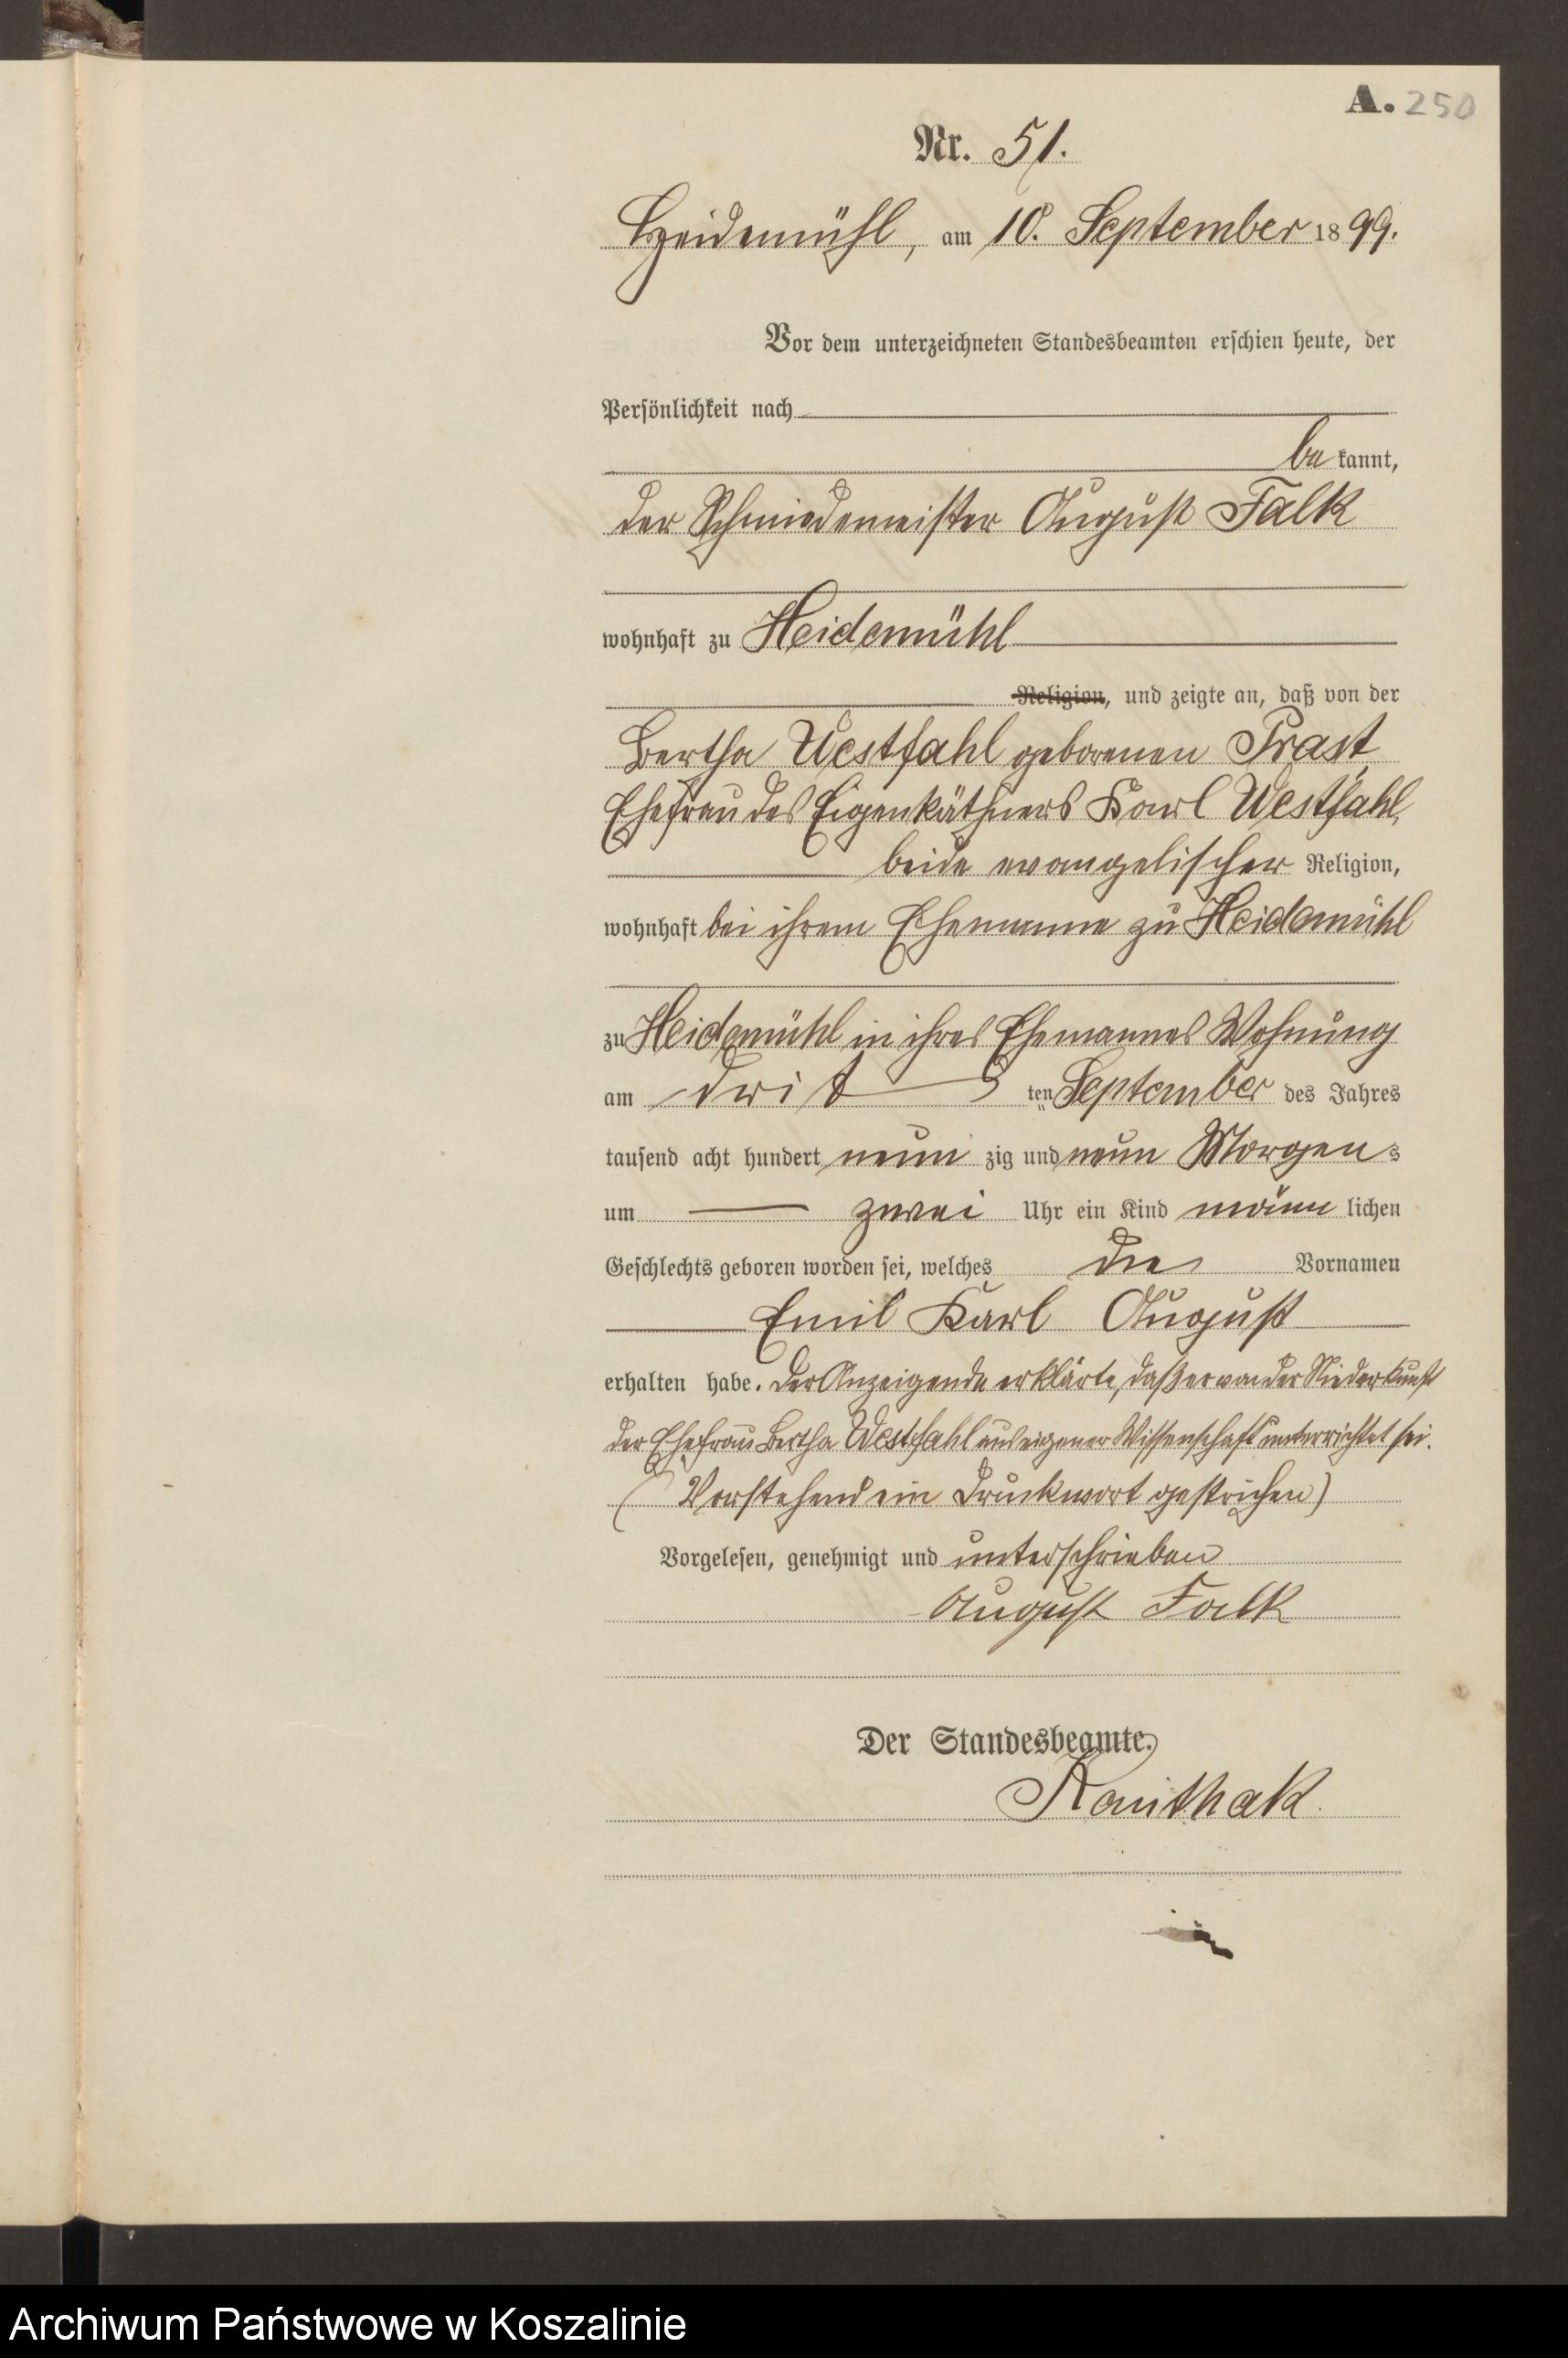 A. 250
Nr. 51.
Heidemühl, am 10. September 1899.
Vor dem unterzeichneten Standesbeamten erschien heute, der
Persönlichkeit nach
bekannt,
der Schmiedemeister August Falk
wohnhaft zu Heidemühl
Religion, und zeigte an, daß von der
Bertha Westfahl geborenen Prast
Ehefrau des Eigenkäthners Karl Westfahl,
beide evangelischer Religion,
wohnhaft bei ihrem Ehemanne zu Heidemühl
zu Heidemühl in ihres Ehemannes Wohnung
am drit ten September des Jahres
tausend acht hundert neun zig und neun Morgens
um zwei Uhr ein Kind männlichen
Geschlechts geboren worden sei, welches die Vornamen
Emil Karl August
erhalten habe. Der Anzeigende erklärte, daß er von der Niederkunft
der Ehefrau Bertha Westfahl aus eigener Wissenschaft unterrichtet sei.
(Vorstehend ein Druckwort gestrichen)
Vorgelesen, genehmigt und unterschrieben
August Falk
Der Standesbeamte.
Archiwum Państwowe w Koszalinie